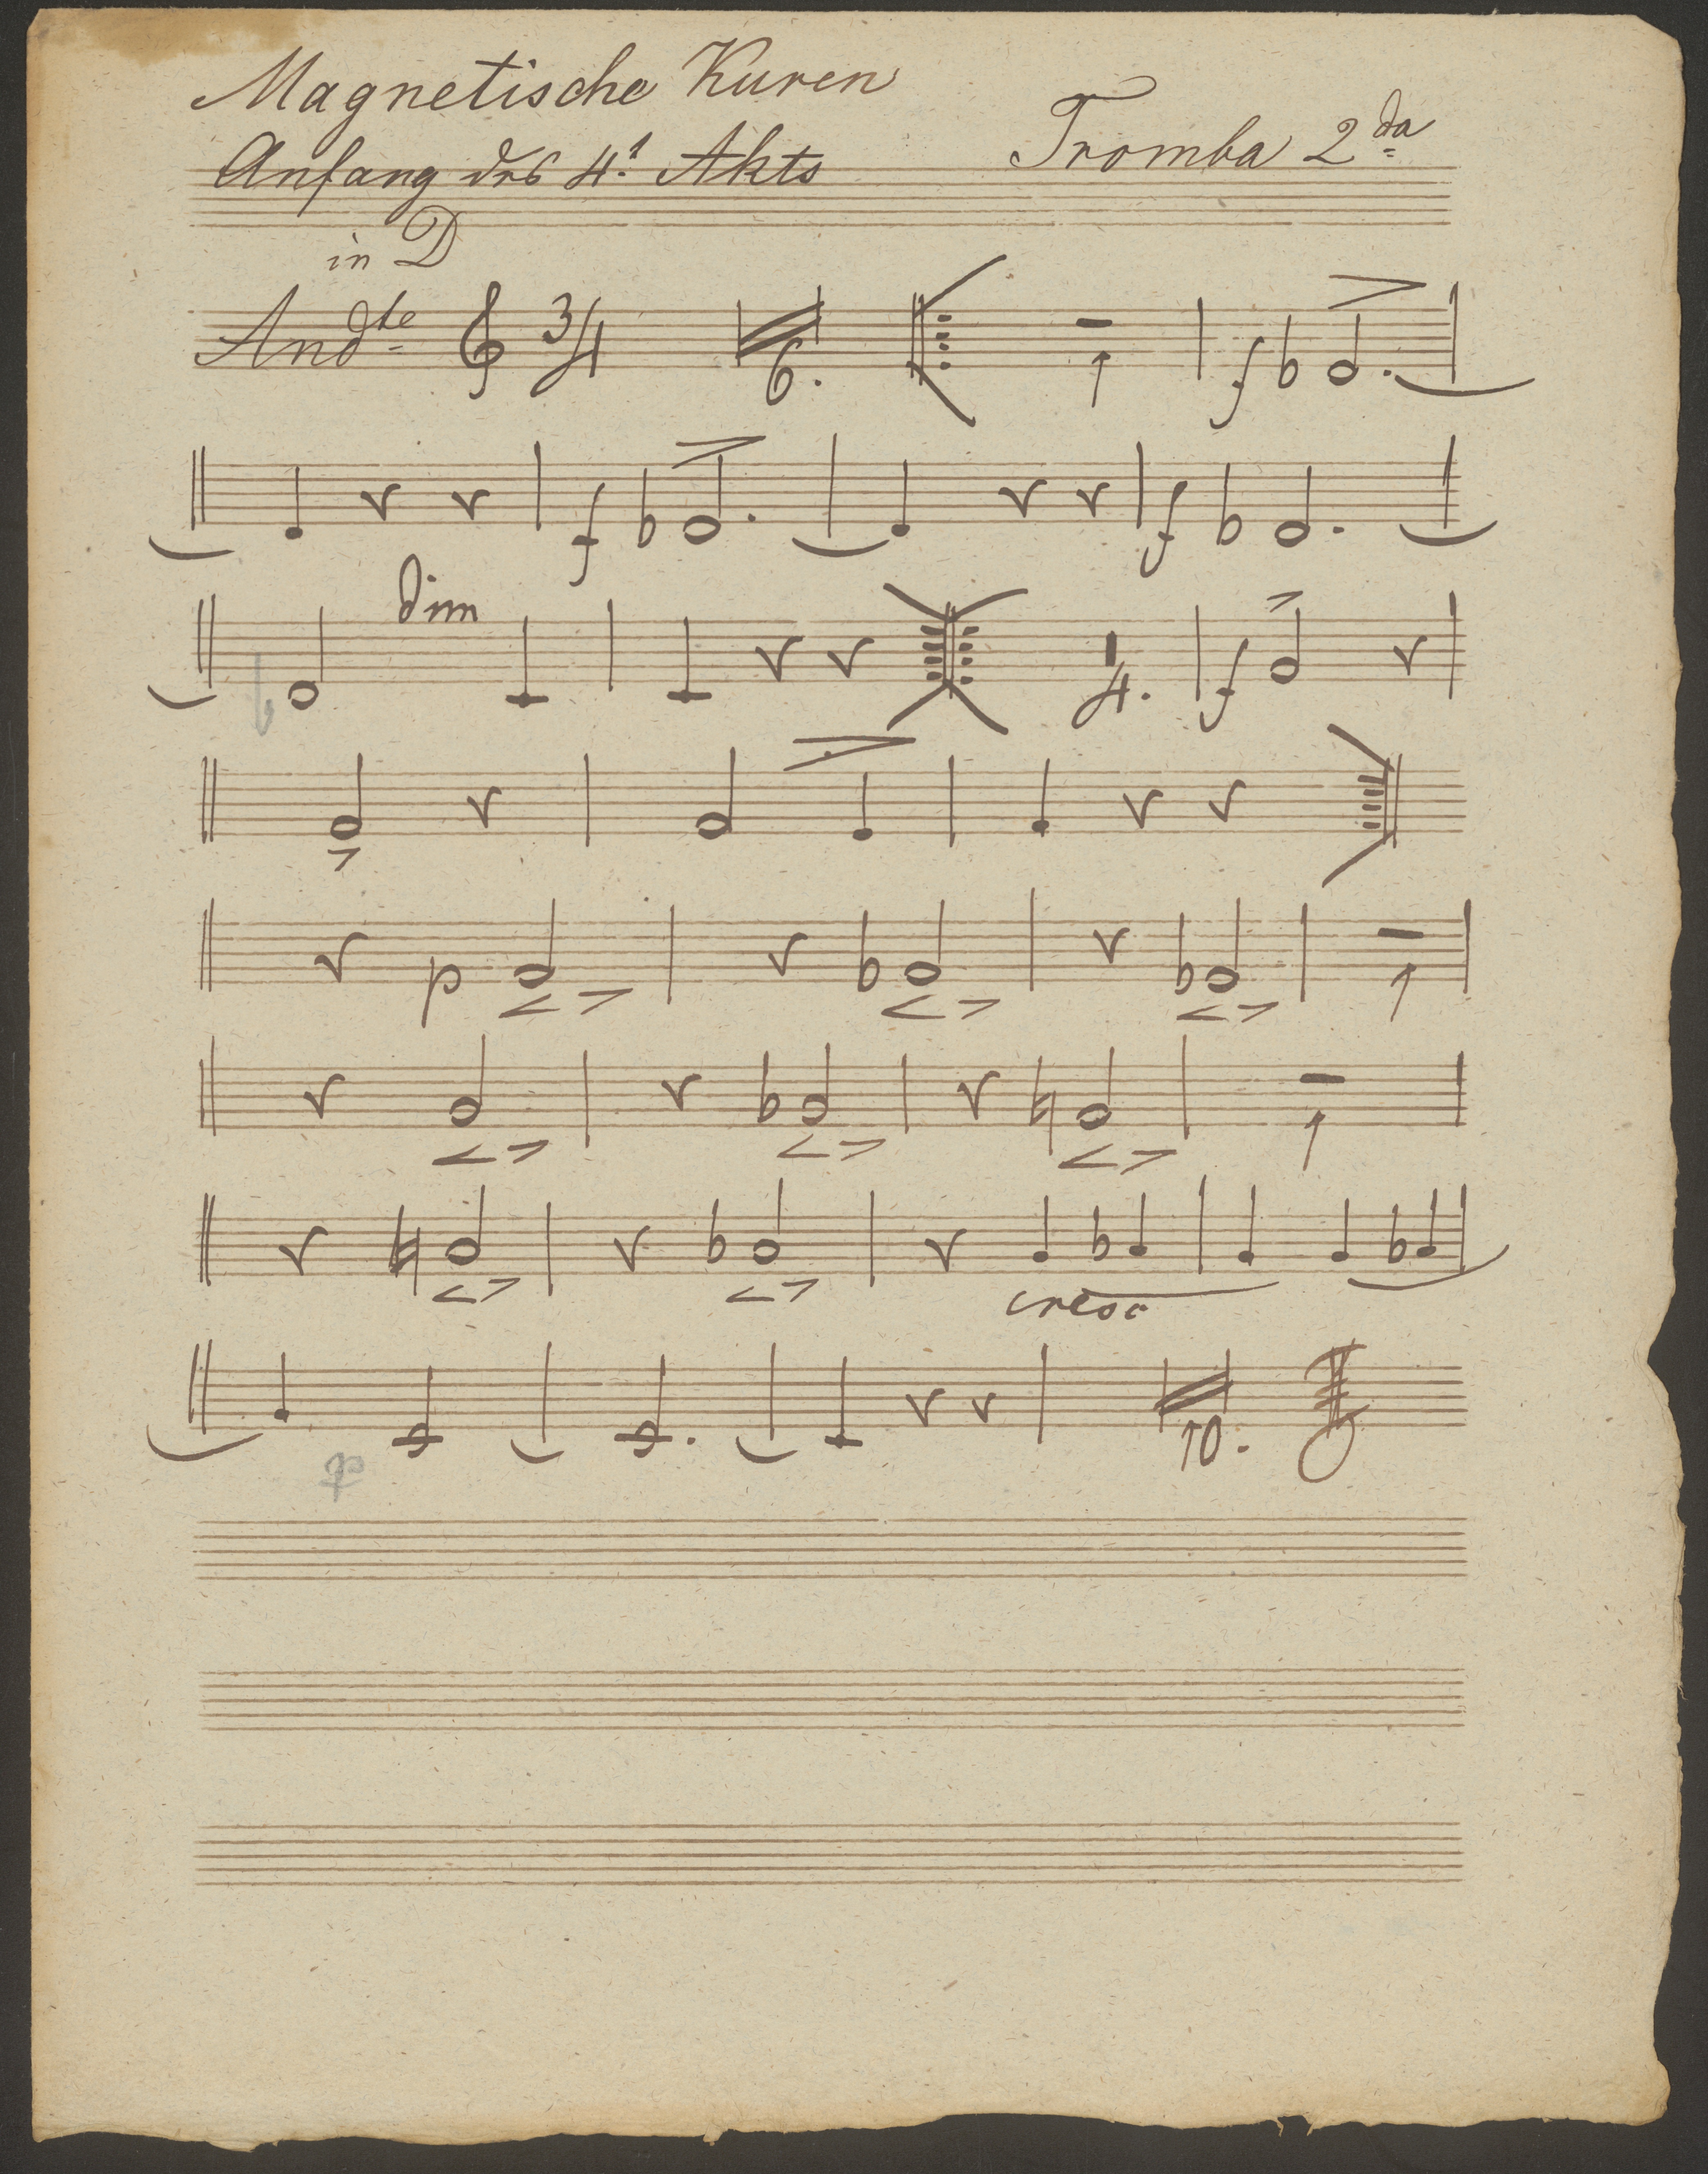 Magnetische Kuren
Anfang des 4.t Akts
Tromba 2da
in D
Andte 3/4 6. 1 f
f f
dim 4. f
p 1
1
cresc
10.